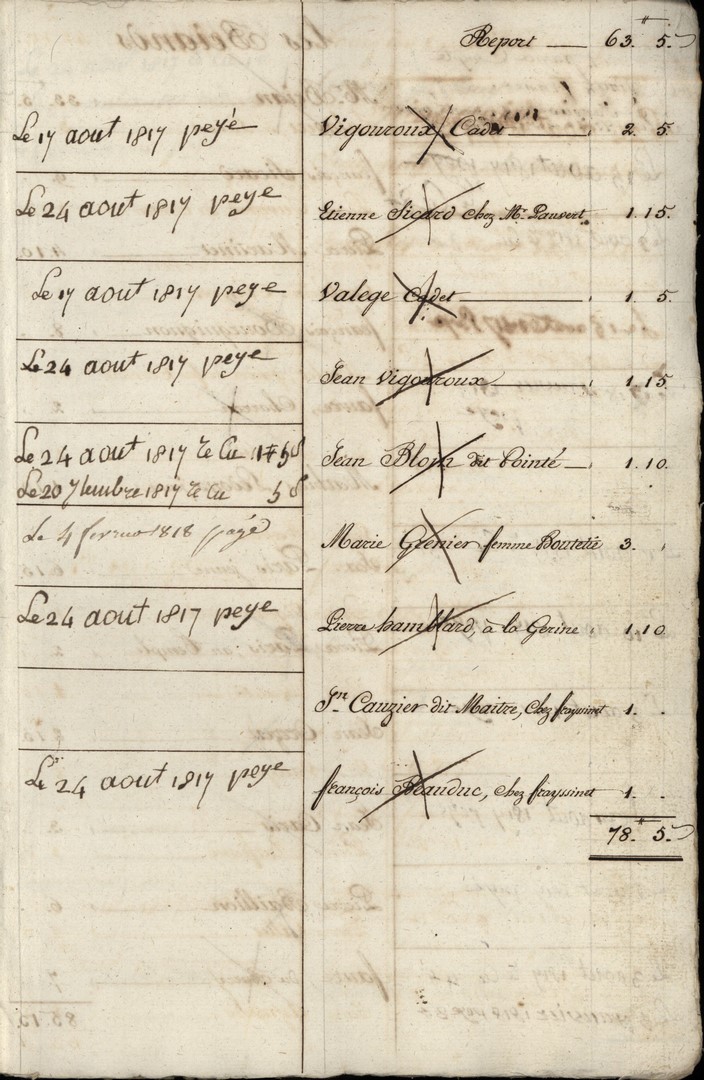 Report 63. 5.
Le 17 aout 1817 peyé Vigouroux Cadet 2. 5.
Le 24 aout 1817 peye Etienne Sicard chez Mr. Pauvert 1. 15.
Le 17 aout 1817 peye Valege Cadet 1. 5.
Le 24 aout 1817 peye Jean Vigouroux 1. 15
Le 24 aout 1817 Re Cu 1# 5s Jean Blom dit Pointé 1. 10.
Le 20 7tembre 1817 Re Cu 5s
Le 4 fevrier 1818 payé Marie Grenier femme Bouteté 3.
Le 24 aout 1817 peye Pierre hamblard, à la Gerine 1. 10
Jn. Cauzier dit Maitre, Chez frayssinet 1. .
Le 24 aout 1817 peye françois Beauduc, chez frayssinet 1. .
78. 5.